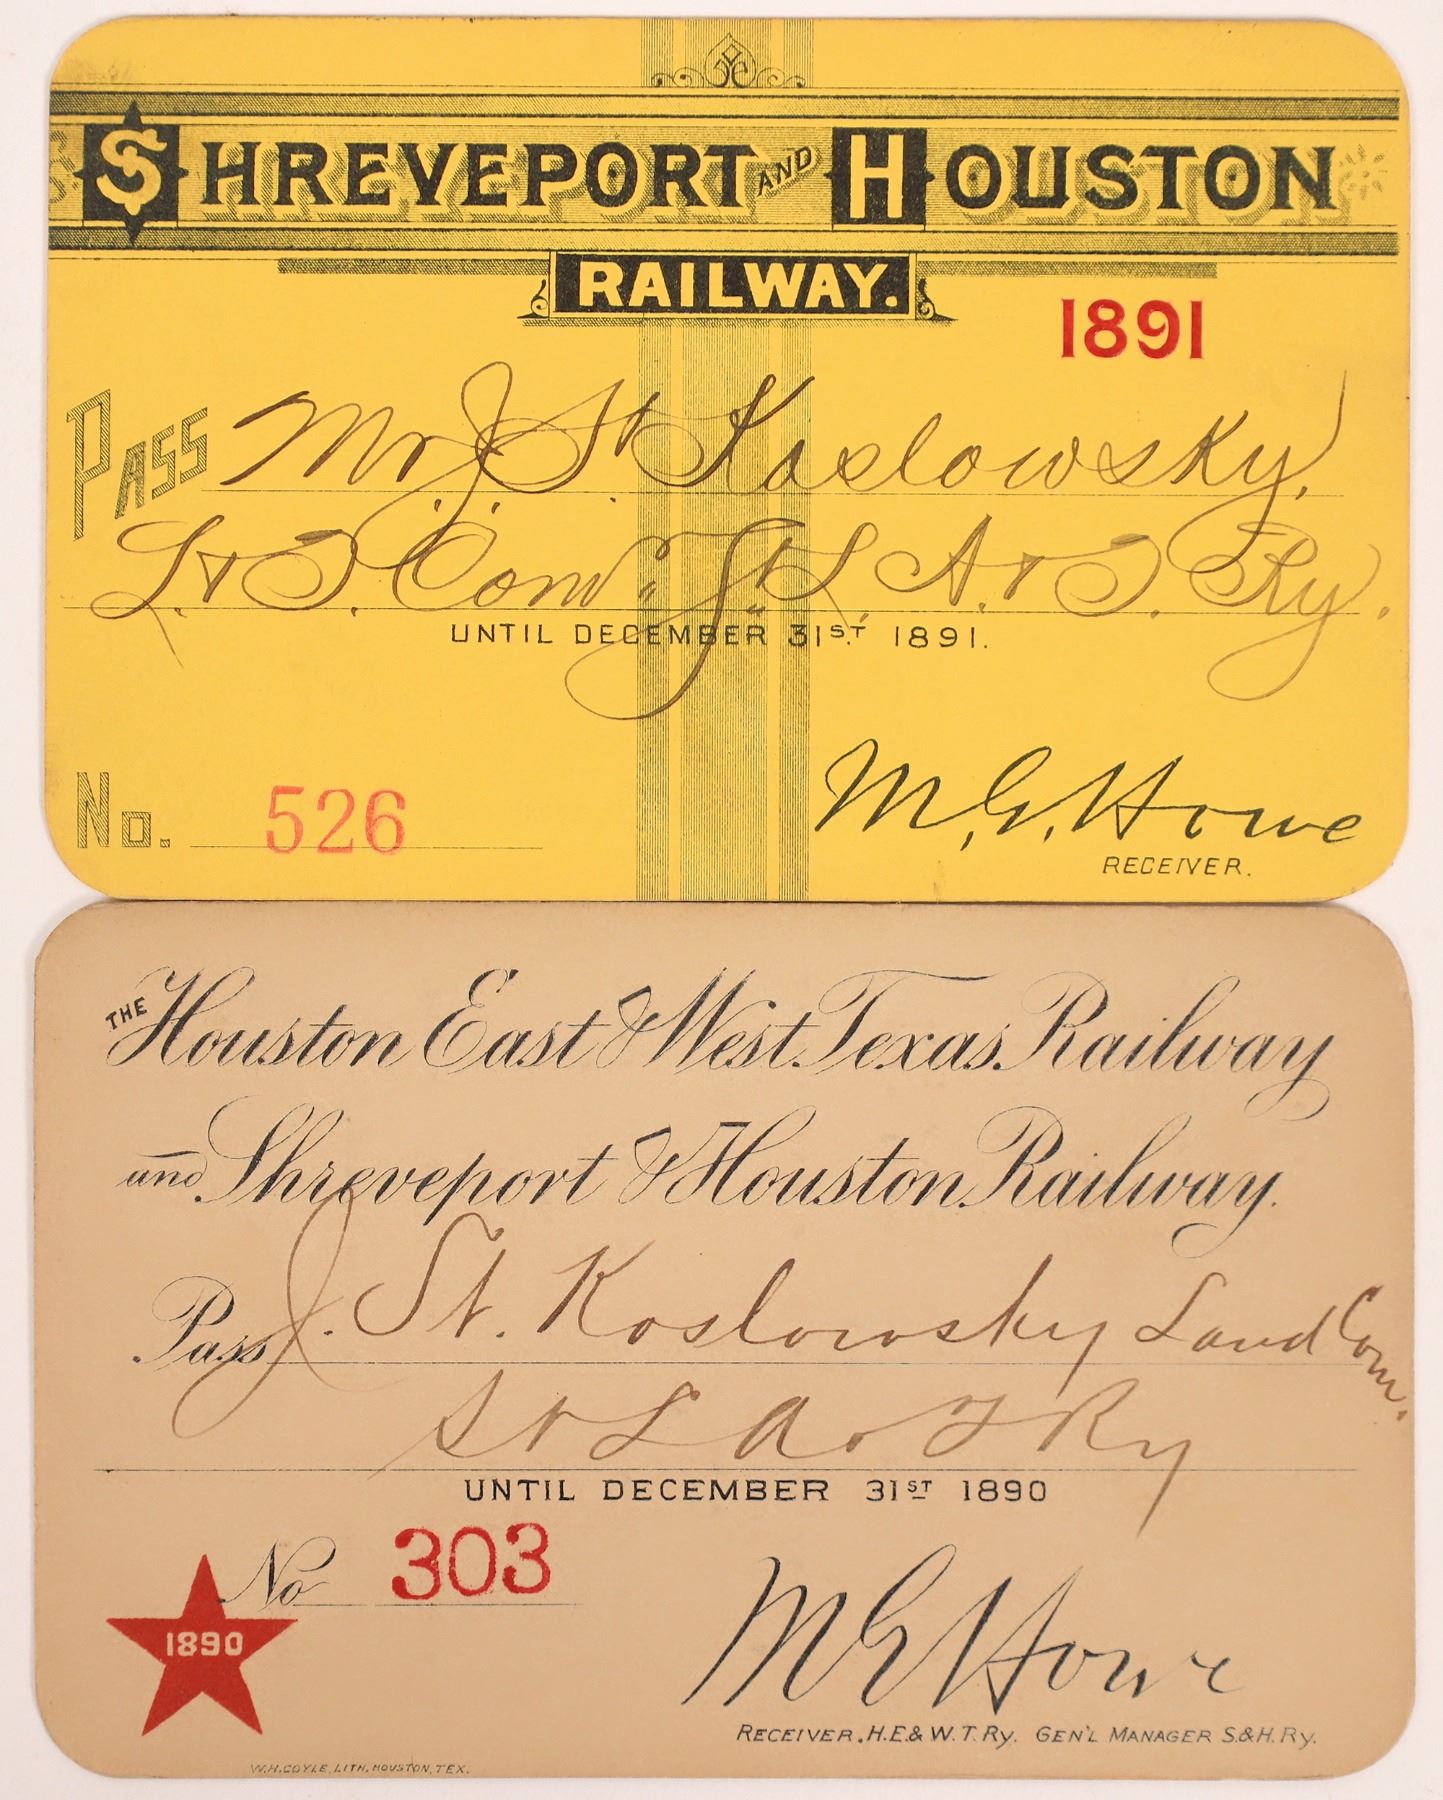 SHREVEPORT AND HOUSTON
RAILWAY.
1891
PASS Mr. J. St. Koslowsky,
L. & T. Com'r. St. L. A. & T. Ry.
UNTIL DECEMBER 31ST 1891.
No. 526
M. G. Howe
RECEIVER.
THE Houston East & West Texas Railway
and Shreveport & Houston Railway.
Pass J. St. Koslowsky Land Com.
St L A & T Ry
UNTIL DECEMBER 31ST 1890
No 303
1890
M G Howe
RECEIVER, H.E.& W.T.Ry. GEN'L MANAGER S.&H.Ry.
W.H.COYLE, LITH, HOUSTON, TEX.